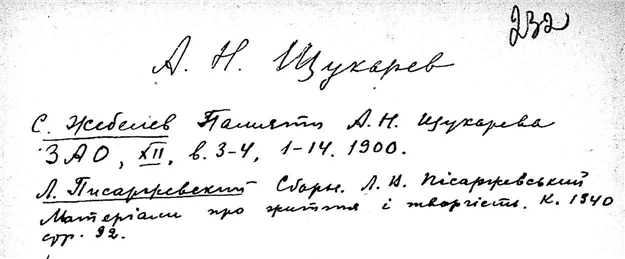 232
А. Н. Щукарев
С. Жебелев Памяти А. Н. Щукарева
ЗАО, XII, в. 3-4, 1-14. 1900.
Л. Писаржевский Сборн. Л. В. Пісаржевський
Матеріали про життя і творчість. К. 1940
стр. 92.